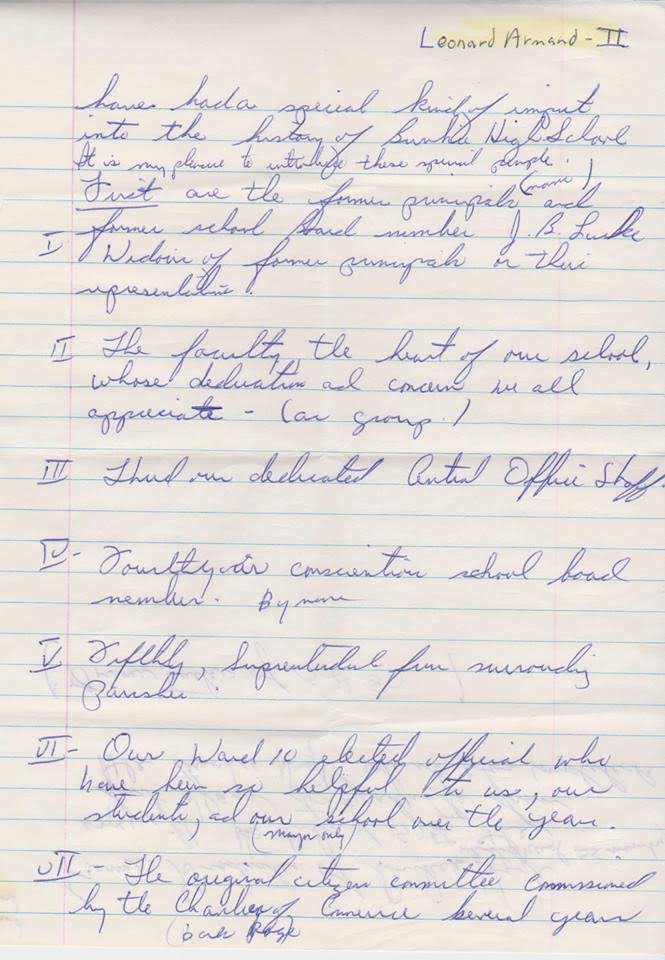 Leonard Armand - II
have had a special kind of input
into the history of Bunkie High School
It is my pleasure to introduce these special people.
First are the former principals (name) and
former school board member J. B. Luske
I Widows of former principals or their
representative.
II The faculty, the heart of our school,
whose dedication ad concern we all
appreciate - (as group.)
III Third our dedicated Central Office Staff.
IV - Fourthly our conscientious school board
member. By name
V Fifthly, Superintendent from surrounding
Parishes.
VI - Our Ward 10 elected official who
have been so helpful to us, our
students, ad our school over the years.
(mayor only)
VII - The original citizen committee commissioned
by the Chamber of Commerce several years
(back page